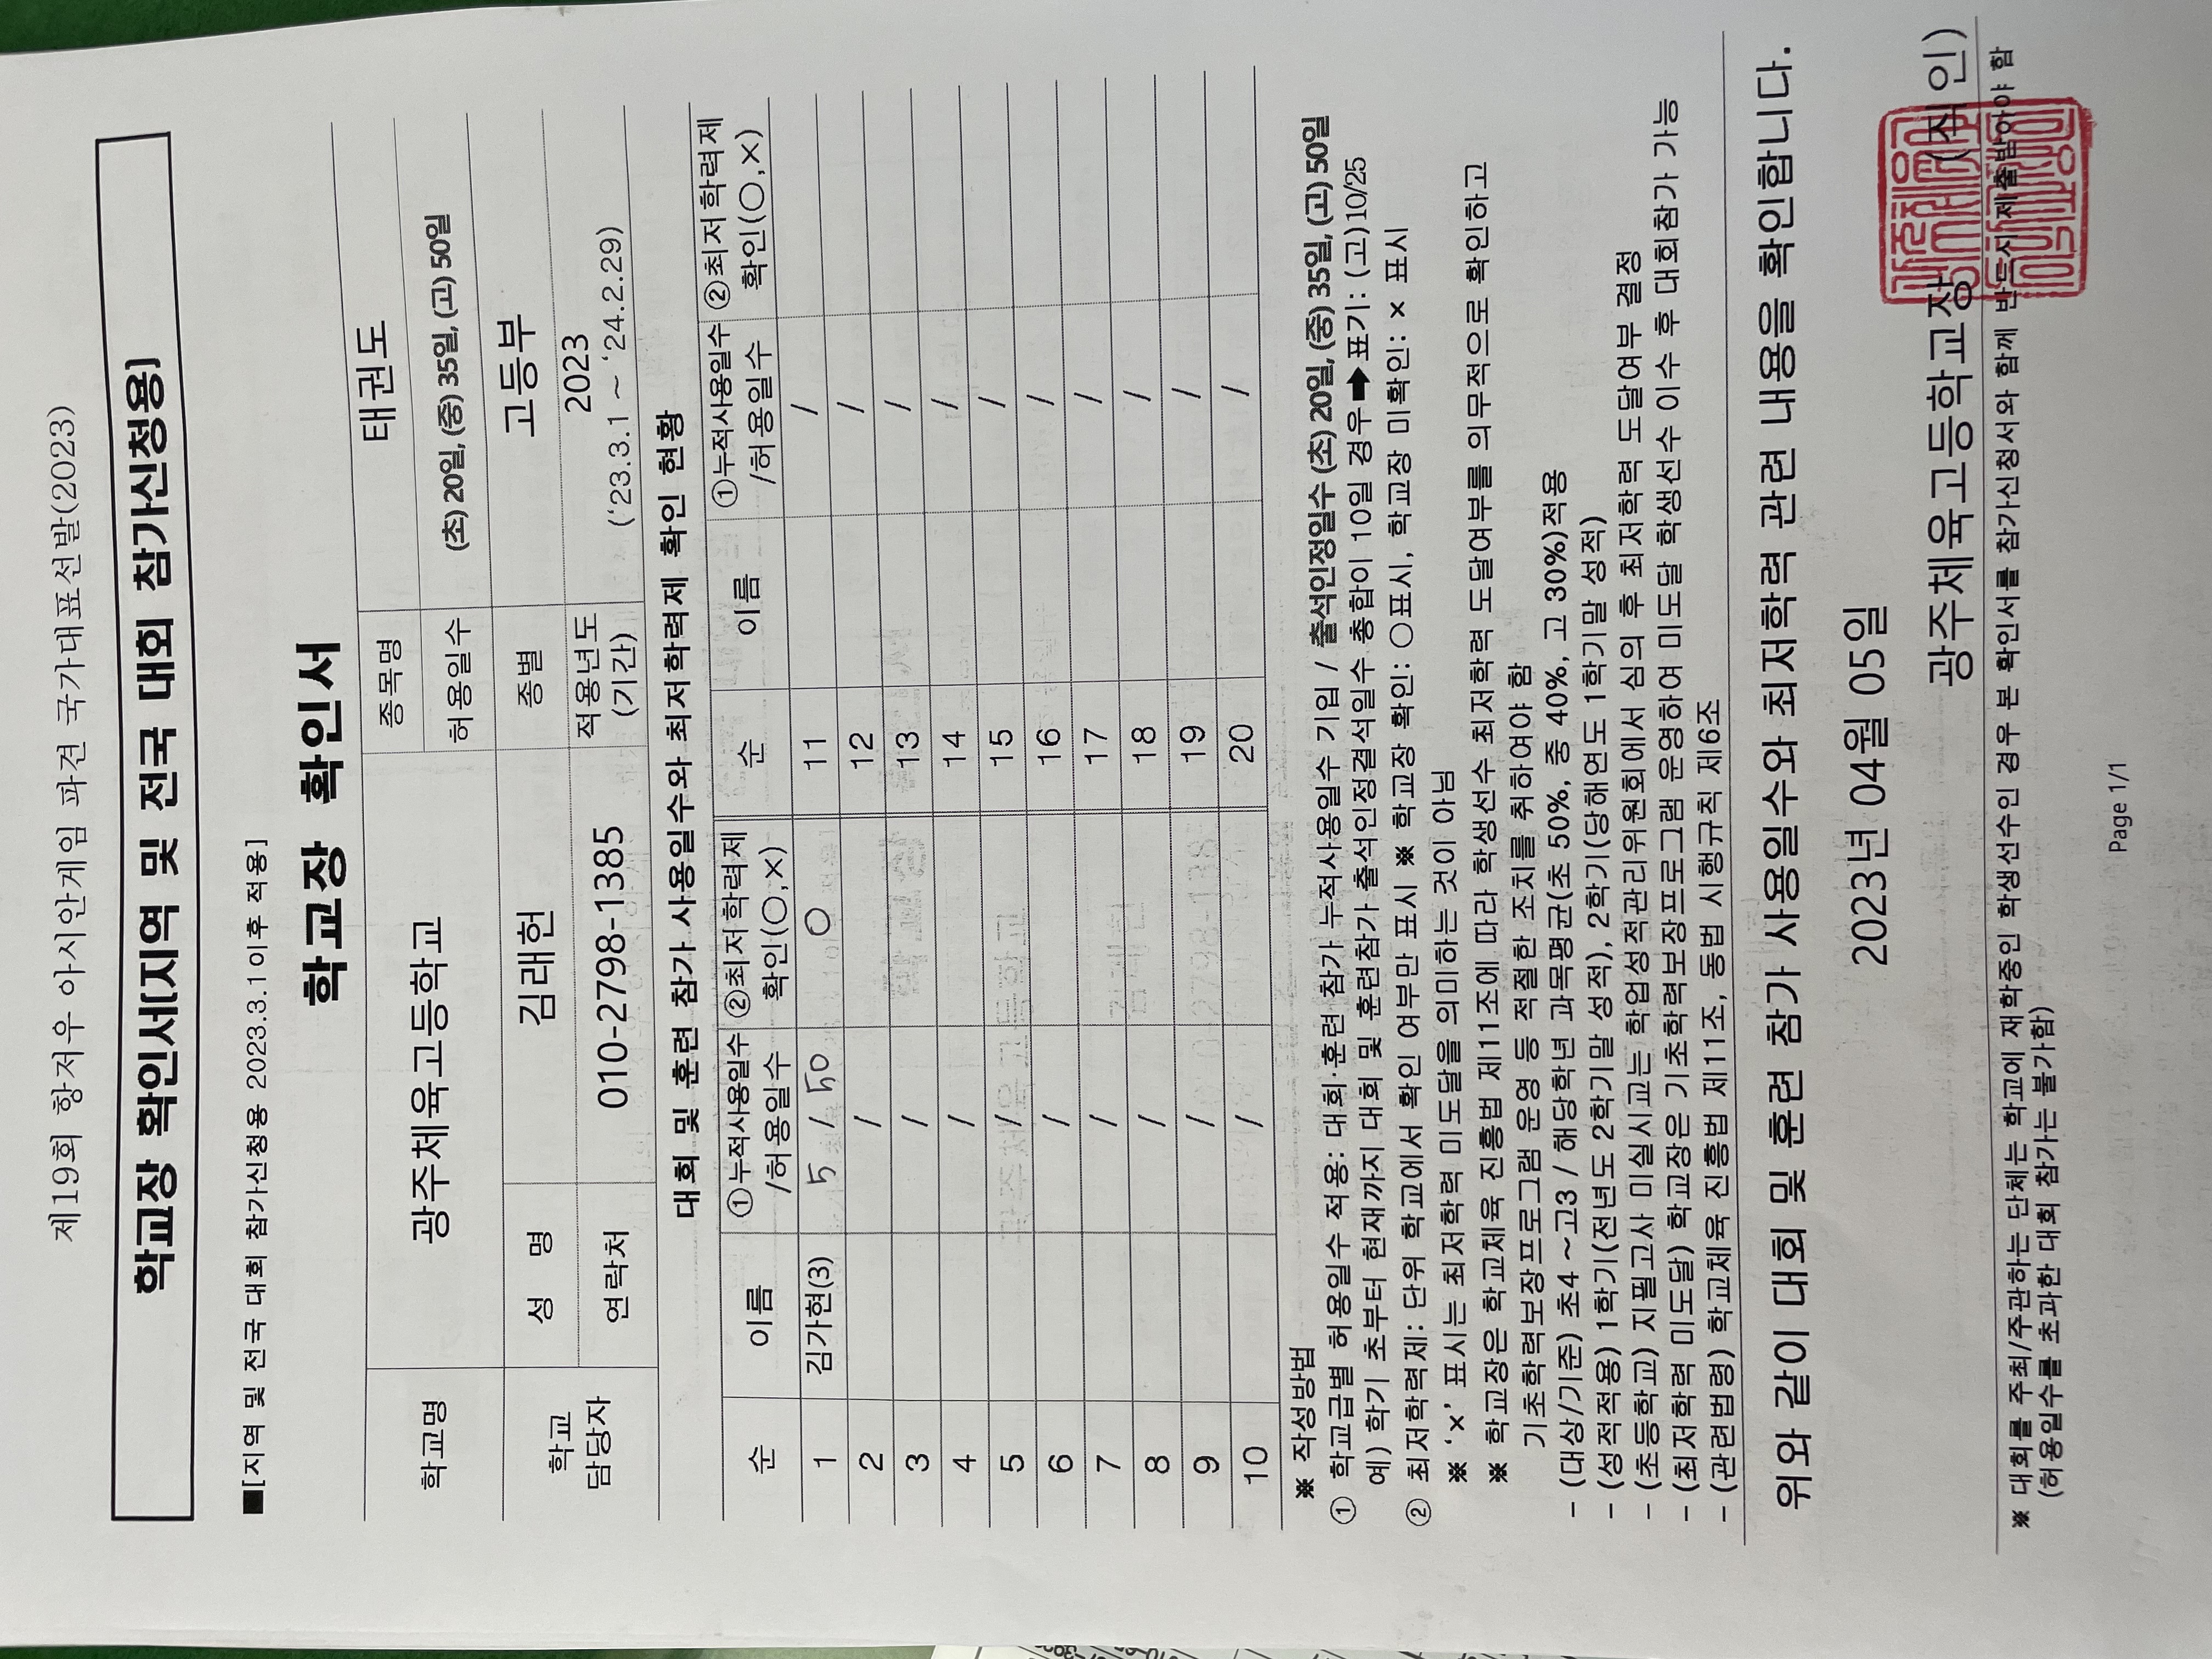 제19회 항저우 아시안게임 파견 국가대표선발(2023)
학교장 확인서[지역 및 전국 대회 참가신청용]
■[지역 및 전국 대회 참가신청용 2023.3.1이후 적용]
학교장 확인서
학교명 광주체육고등학교 종목명 태권도
허용일수 (초) 20일, (중) 35일, (고) 50일
학교 담당자 성 명 김래헌 종별 고등부
연락처 010-2798-1385 적용년도 (기간) 2023 ('23.3.1 ~ '24.2.29)
대회 및 훈련 참가 사용일수와 최저학력제 확인 현황
순 이름 ①누적사용일수 /허용일수 ②최저학력제 확인(○,×) 순 이름 ①누적사용일수 /허용일수 ②최저학력제 확인(○,×)
1 김가현(3) 5 / 50 ○ 11 /
2 / 12 /
3 / 13 /
4 / 14 /
5 / 15 /
6 / 16 /
7 / 17 /
8 / 18 /
9 / 19 /
10 / 20 /
※ 작성방법
① 학교급별 허용일수 적용: 대회·훈련참가 누적사용일수 기입 / 출석인정일수 (초) 20일, (중) 35일, (고) 50일
예) 학기 초부터 현재까지 대회 및 훈련참가 출석인정결석일수 총합이 10일 경우 ➡ 표기: (고)10/25
② 최저학력제: 단위 학교에서 확인 여부만 표시 ※ 학교장 확인: ○표시, 학교장 미확인: × 표시
※ '×' 표시는 최저학력 미도달을 의미하는 것이 아님
※ 학교장은 학교체육 진흥법 제11조에 따라 학생선수 최저학력 도달여부를 의무적으로 확인하고
기초학력보장프로그램 운영 등 적절한 조치를 취하여야 함
- (대상/기준) 초4 ~고3 / 해당학년 과목평균(초 50%, 중 40%, 고 30%)적용
- (성적적용) 1학기(전년도 2학기말 성적), 2학기(당해연도 1학기말 성적)
- (초등학교) 지필고사 미실시교는 학업성적관리위원회에서 심의 후 최저학력 도달여부 결정
- (최저학력 미도달) 학교장은 기초학력보장프로그램 운영하여 미도달 학생선수 이수 후 대회참가 가능
- (관련법령) 학교체육 진흥법 제11조, 동법 시행규칙 제6조
위와 같이 대회 및 훈련 참가 사용일수와 최저학력 관련 내용을 확인합니다.
2023년 04월 05일
광주체육고등학교장 (직인)
※ 대회를 주최/주관하는 단체는 학교에 재학중인 학생선수인 경우 본 확인서를 참가신청서와 함께 반드시 제출받아야 함
(허용일수를 초과한 대회 참가는 불가함)
Page 1/1